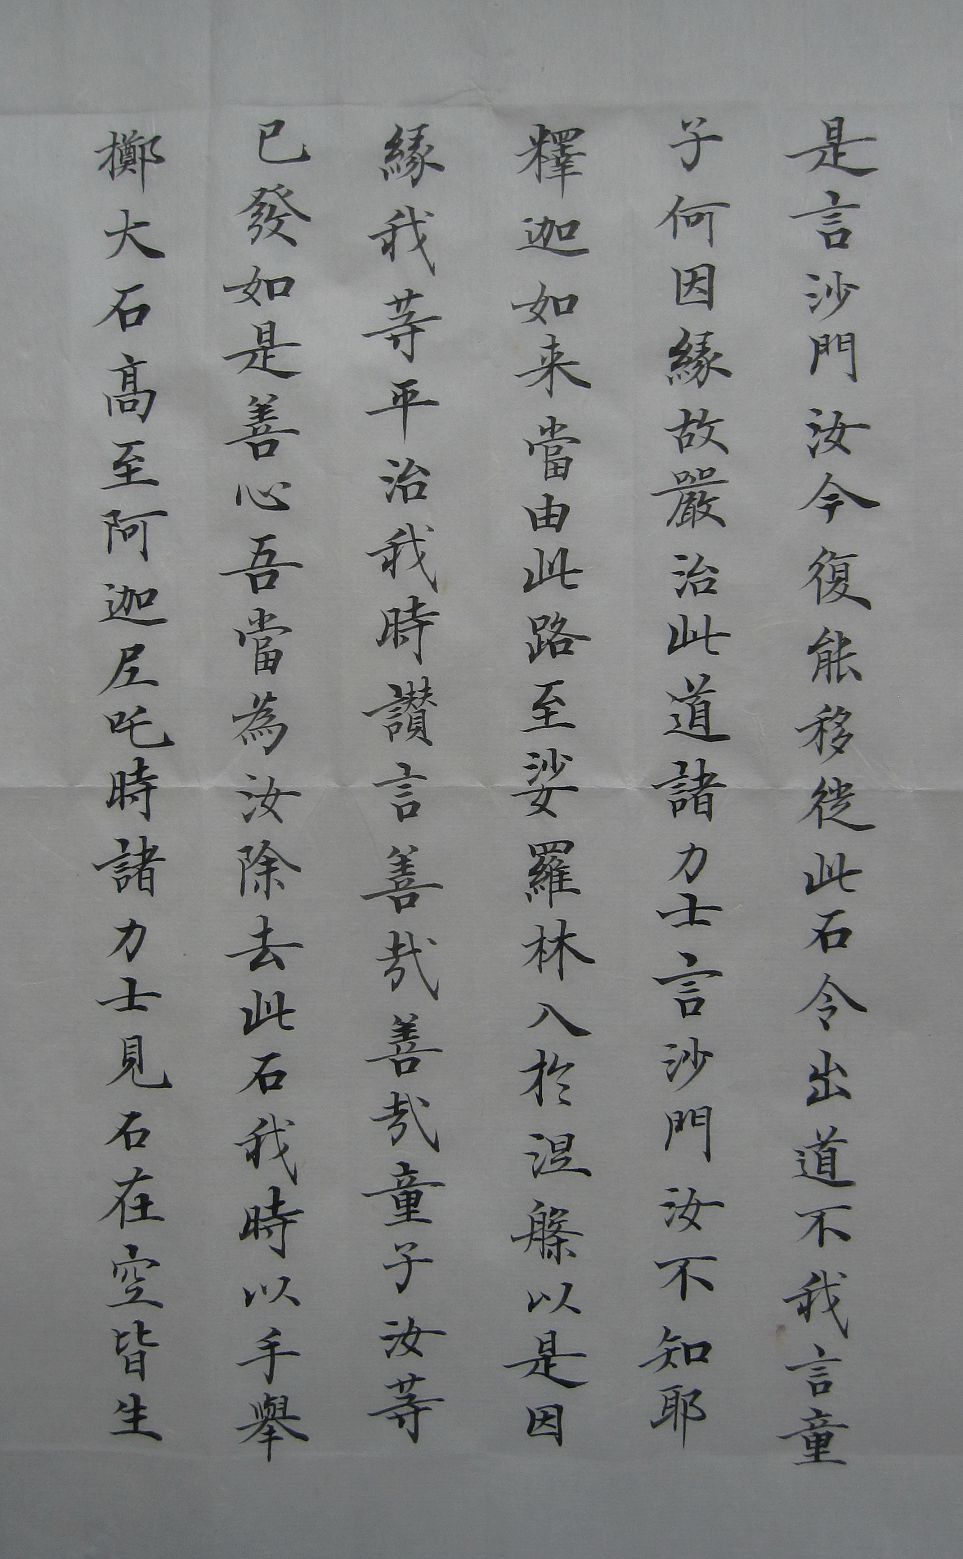 是言沙門汝今復能移徙此石令出道不我言童
子何因緣故嚴治此道諸力士言沙門汝不知耶
釋迦如来當由此路至娑羅林入於涅槃以是因
緣我等平治我時讃言善哉善哉童子汝等
已發如是善心吾當為汝除去此石我時以手舉
擲大石高至阿迦尼吒時諸力士見石在空皆生